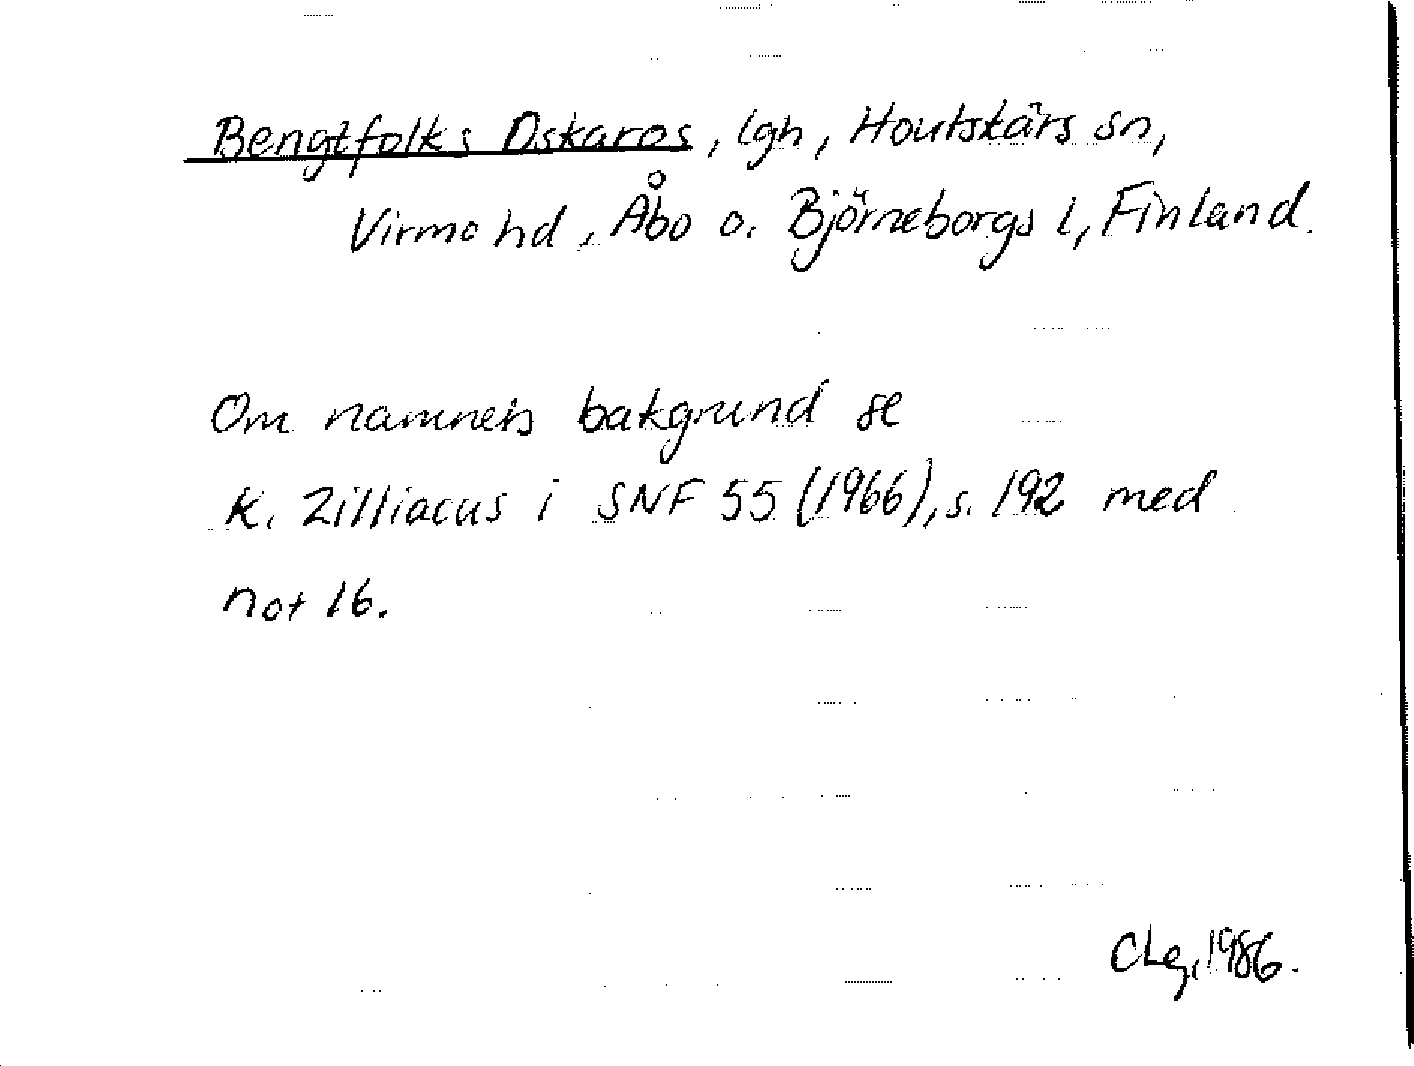 Bengtfolks Oskaros, lgh, Houtskärs sn,
Virmo hd, Åbo o. Björneborgs l, Finland.
Om namnets bakgrund se
K. Zilliacus i SNF 55 (1966), s. 192 med
not 16.
CLg, 1986.